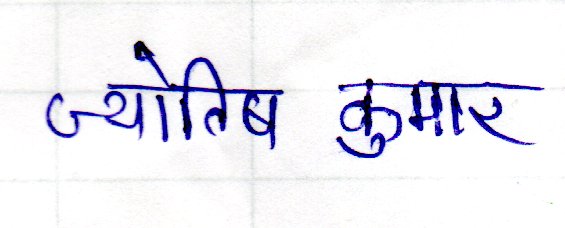 ज्योतिष कुमार